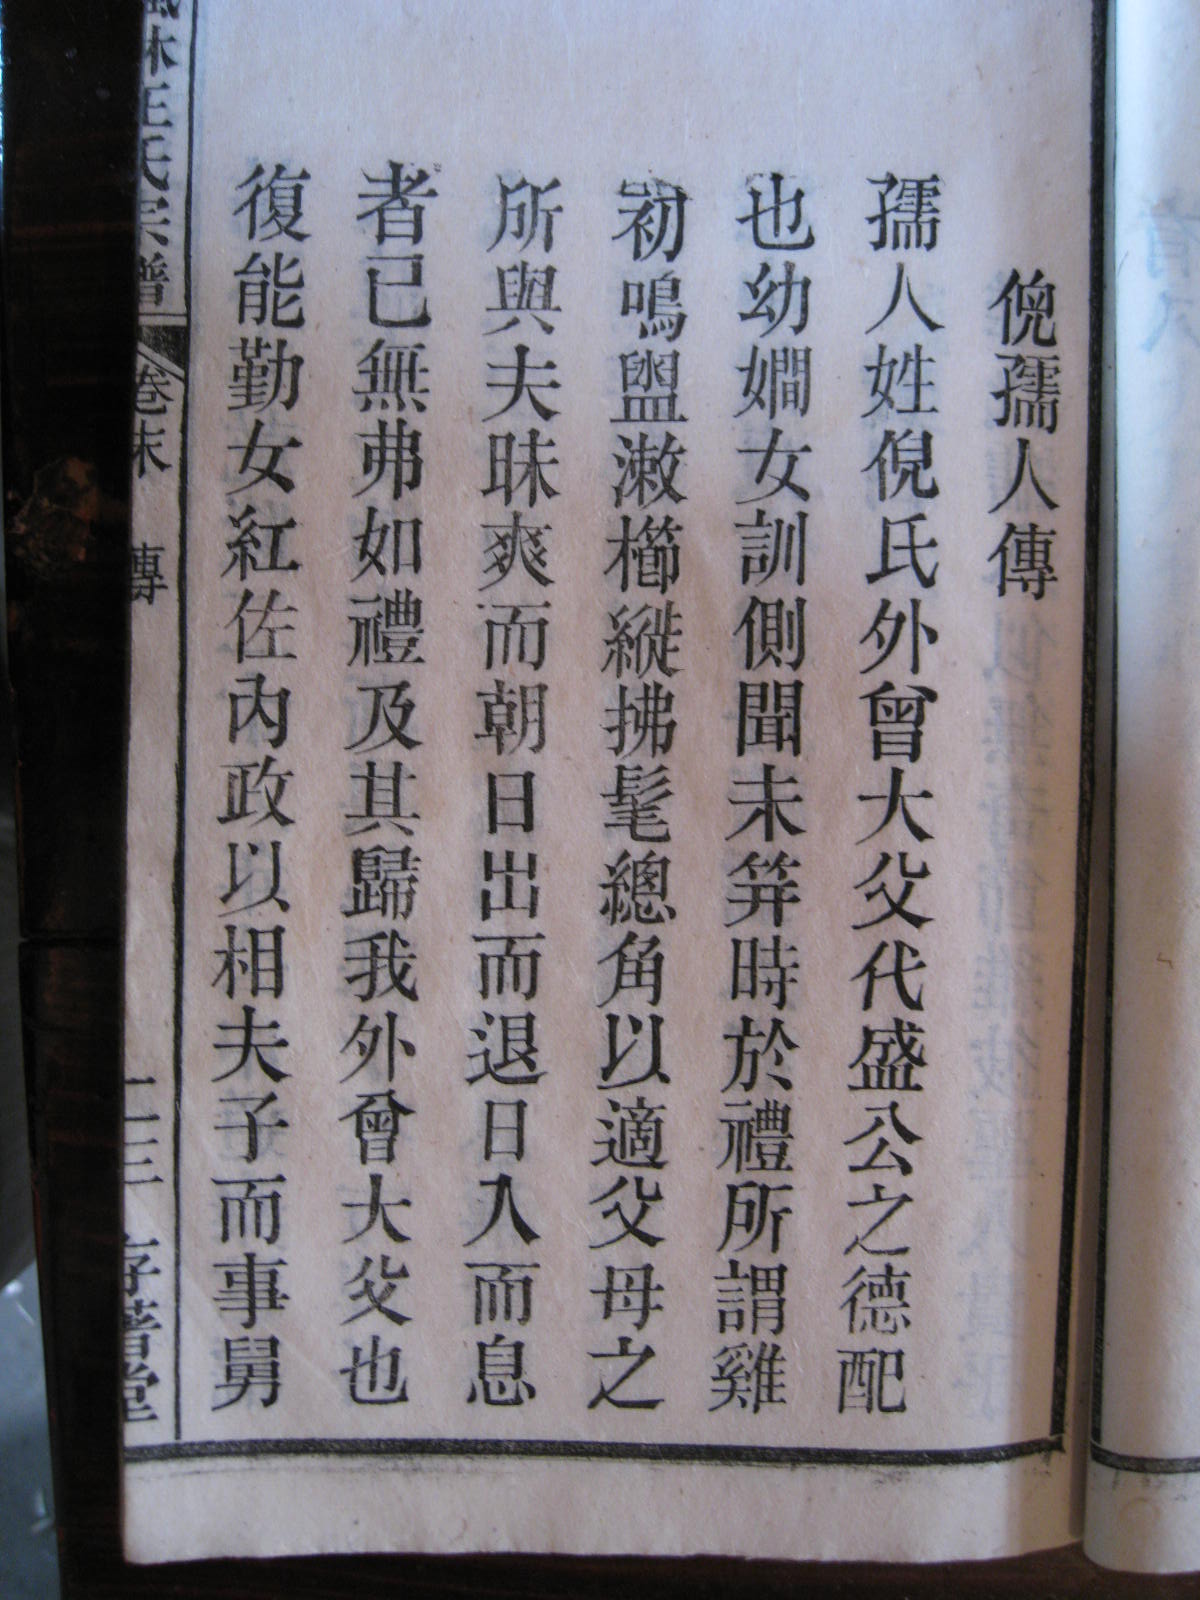 倪孺人傳
孺人姓倪氏外曾大父代盛公之德配
也幼嫺女訓側聞未笄時於禮所謂雞
初鳴盥漱櫛縰拂髦總角以適父母之
所與夫昧爽而朝日出而退日入而息
者已無弗如禮及其歸我外曾大父也
復能勤女紅佐內政以相夫子而事舅
林王氏宗譜
卷末
傳
存著堂